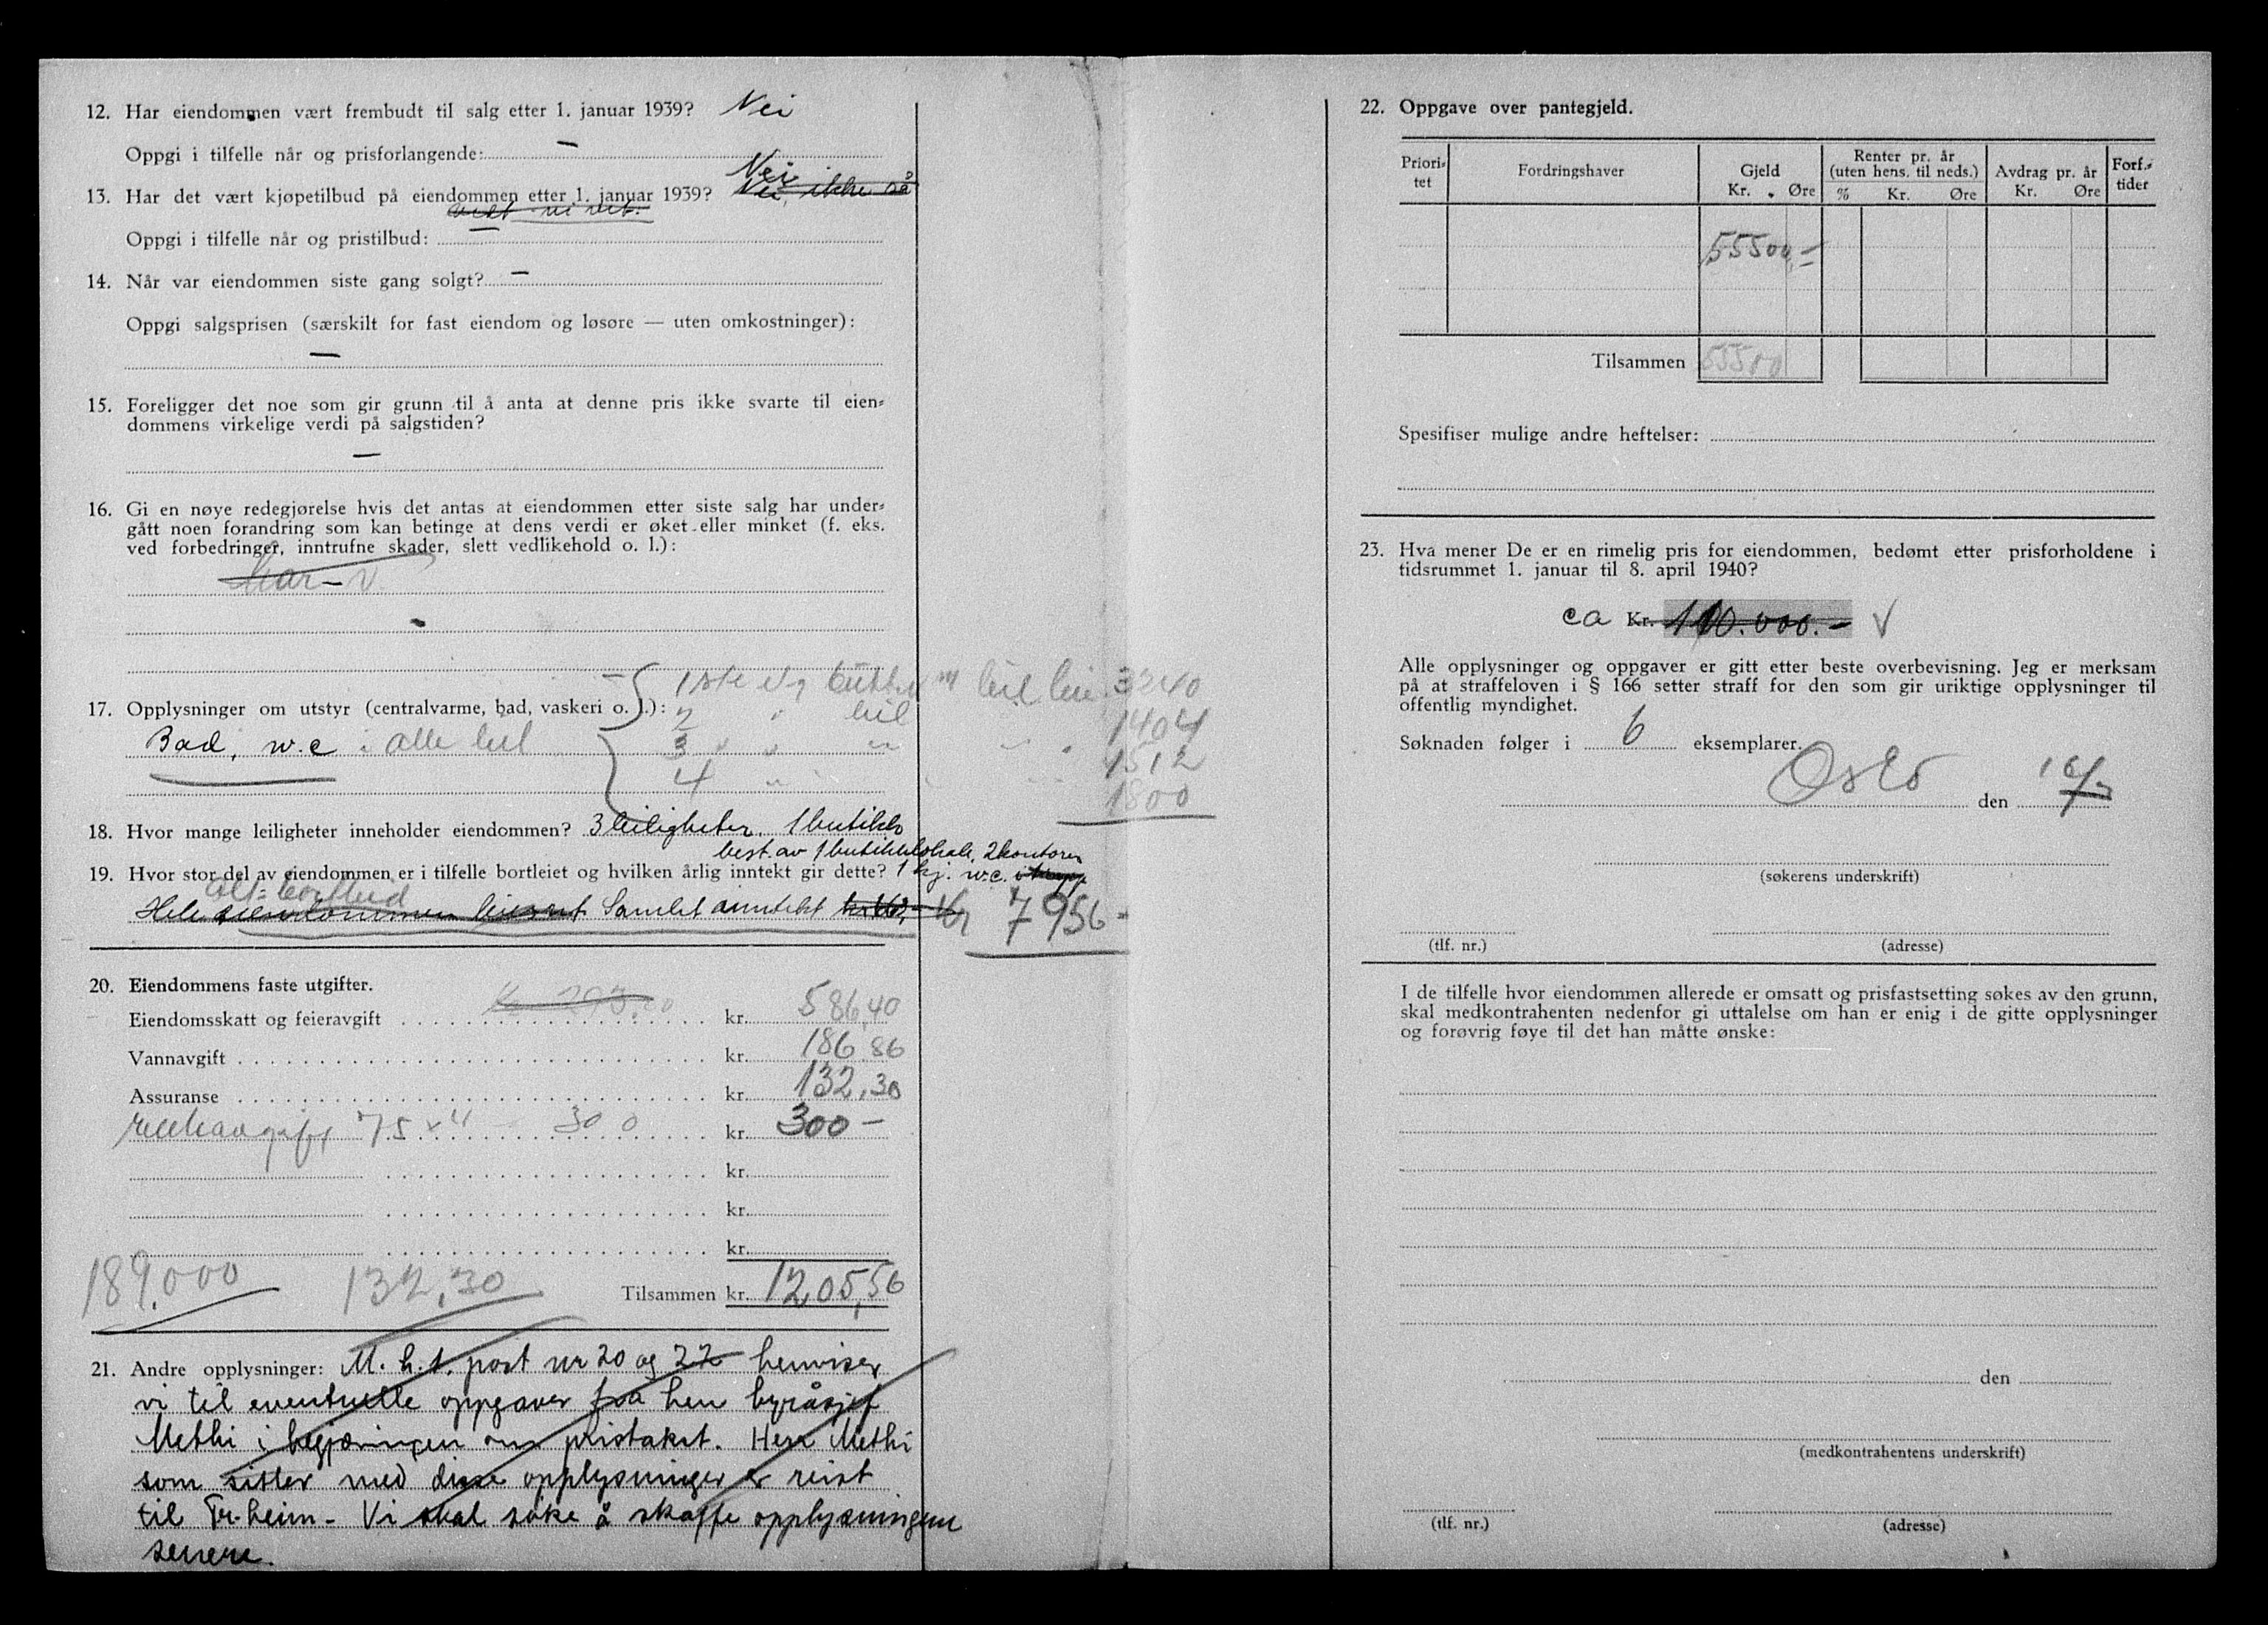 12. Har eiendommen vært frembudt til salg etter 1. januar 1939? Nei
Oppgi i tilfelle når og prisforlangende: —
Nei
13. Har det vært kjøpetilbud på eiendommen etter 1. januar 1939? Nei, ikke så
vidt vi vet.
Oppgi i tilfelle når og pristilbud: —
14. Når var eiendommen siste gang solgt? —
Oppgi salgsprisen (særskilt for fast eiendom og løsøre — uten omkostninger):
—
15. Foreligger det noe som gir grunn til å anta at denne pris ikke svarte til eien-
dommens virkelige verdi på salgstiden?
—
16. Gi en nøye redegjørelse hvis det antas at eiendommen etter siste salg har under-
gått noen forandring som kan betinge at dens verdi er øket eller minket (f. eks.
ved forbedringer, inntrufne skader, slett vedlikehold o. l.):
-
1ste Eg butikk m leil leie 3240
17. Opplysninger om utstyr (centralvarme, bad, vaskeri o. l.):
2 " leil 1404
Bad, w.c i alle leil
3 " " " 1512
4 " 1800
18. Hvor mange leiligheter inneholder eiendommen? 3 leiligheter. 1 butikk
best. av 1 butikklokale, 2 kontorer
19. Hvor stor del av eiendommen er i tilfelle bortleiet og hvilken årlig inntekt gir dette? 1 kj. w.c.
Alt bortleid
Hele eiendommen Samlet anntekt Kr 7956-
20. Eiendommens faste utgifter.
Eiendomsskatt og feieravgift kr. 586,40
Vannavgift kr. 186.86
Assuranse kr. 132,30
75 x 4 300 kr. 300 —
kr.
kr.
kr.
189.000 132,30 Tilsammen kr. 1205,56
21. Andre opplysninger: M.h.t. post nr 20 og 22 henviser
vi til eventuelle oppgaver fra herr byråsjef
Methi i begjæringen om pristakst. Herr Methi
som sitter med disse opplysninger er reist
til Tr.heim - Vi skal søke å skaffe opplysningene
senere.
22. Oppgave over pantegjeld.
Priori-
tet
Fordringshaver
Gjeld
Kr. Øre
Renter pr. år
(uten hens. til neds.)
% Kr. Øre
Avdrag pr. år
Kr. Øre
Forf.-
tider
55500,-
Tilsammen 55500
Spesifiser mulige andre heftelser:
23. Hva mener De er en rimelig pris for eiendommen, bedømt etter prisforholdene i
tidsrummet 1. januar til 8. april 1940?
ca Kr. 110.000.- V
Alle opplysninger og oppgaver er gitt etter beste overbevisning. Jeg er merksam
på at straffeloven i § 166 setter straff for den som gir uriktige opplysninger til
offentlig myndighet.
Søknaden følger i 6 eksemplarer.
Oslo den
(søkerens underskrift)
(tlf. nr.) (adresse)
I de tilfelle hvor eiendommen allerede er omsatt og prisfastsetting søkes av den grunn,
skal medkontrahenten nedenfor gi uttalelse om han er enig i de gitte opplysninger
og forøvrig føye til det han måtte ønske:
den
(medkontrahentens underskrift)
(tlf. nr.) (adresse)